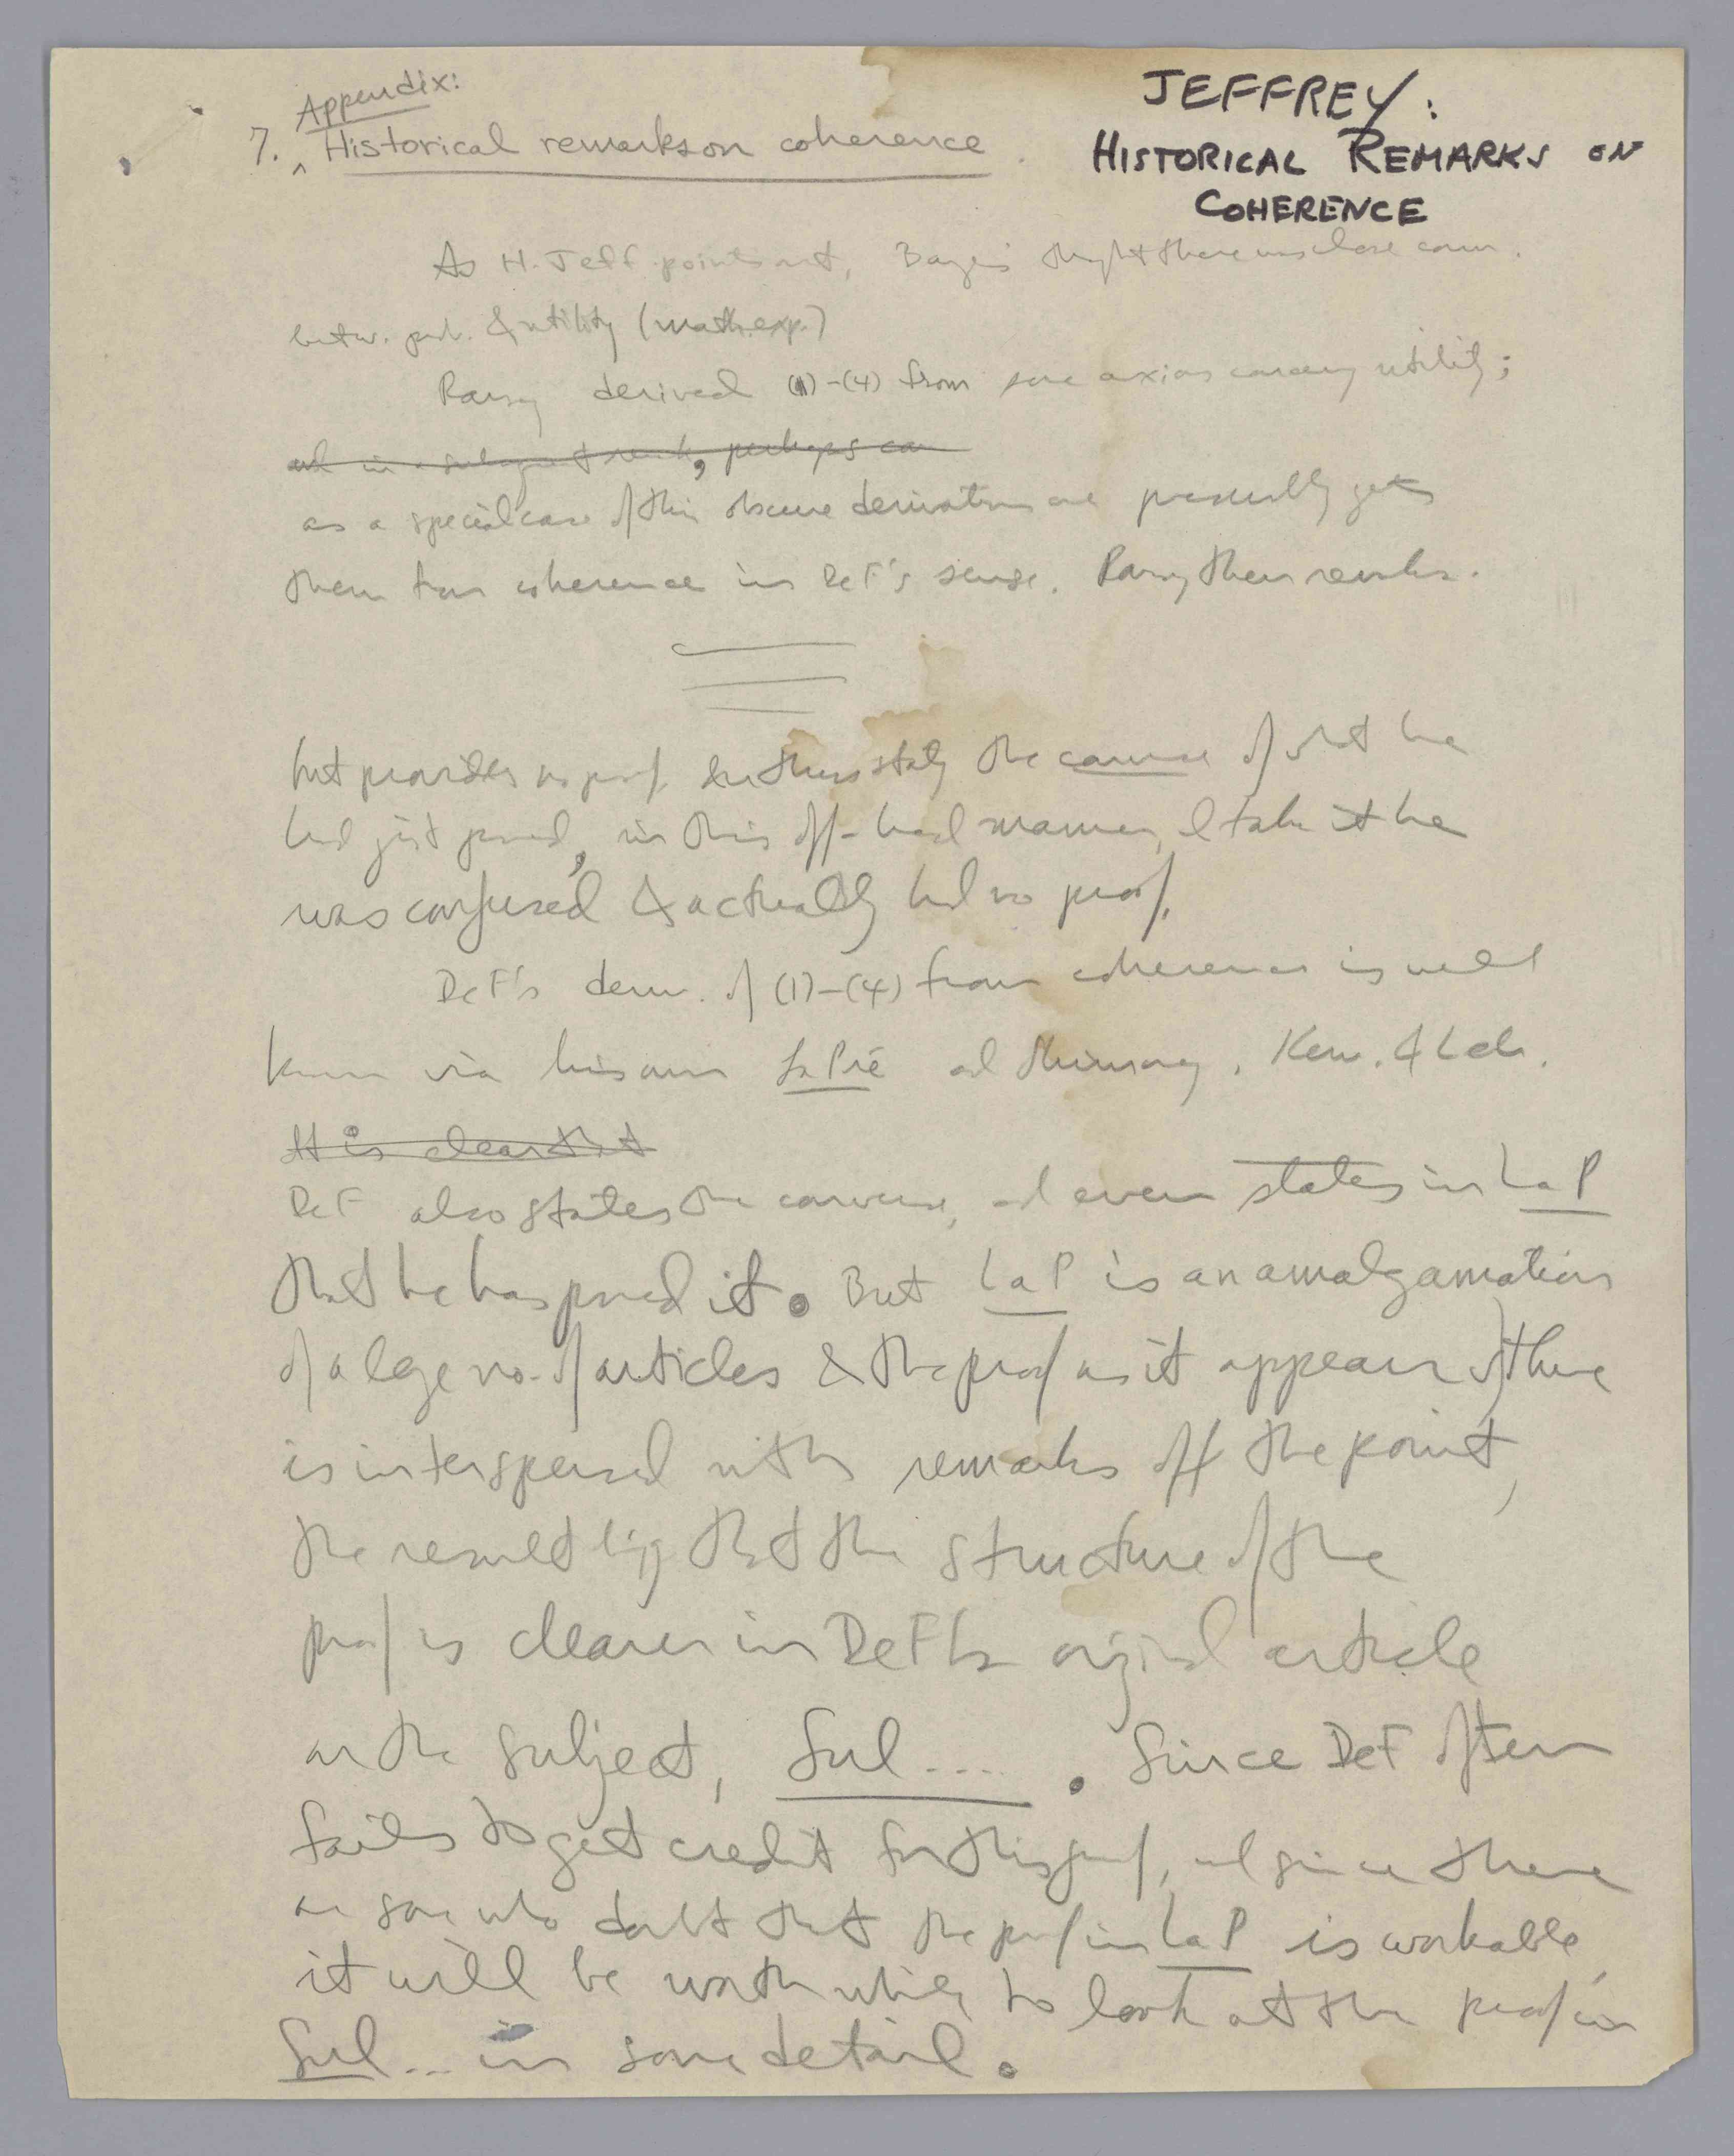 Appendix:
7. ^ Historical remarks on coherence.
JEFFREY:
HISTORICAL REMARKS ON
COHERENCE
As H. Jeff. points out, Bayes thought there was close conn.
betw. prob. & utility (math. exp.)
Ramsey derived (1)-(4) from some axioms concerning utility;
and in a subsequent remark, perhaps can
as a special case of this obscure derivation one presumably gets
them from coherence in DeF's sense. Ramsey then remarks.
but provides no proof. In thus stating the converse of what he
had just proved, in this off-hand manner, I take it he
was confused & actually had no proof.
DeF's deriv. of (1)-(4) from coherence is well
known via his own La Pré and Shimony, Kem. & Leh.
It is clear that
DeF also states the converse, and even states in La P
that he has proved it. But La P is an amalgamation
of a large no. of articles & the proof as it appears there
is interspersed with remarks off the point,
the result being that the structure of the
proof is clearer in DeF's original article
on the subject, Sul .... . Since DeF often
fails to get credit for this proof, and since there
are some who doubt that the proof in La P is workable,
it will be worth while to look at the proof in
Sul... in some detail.